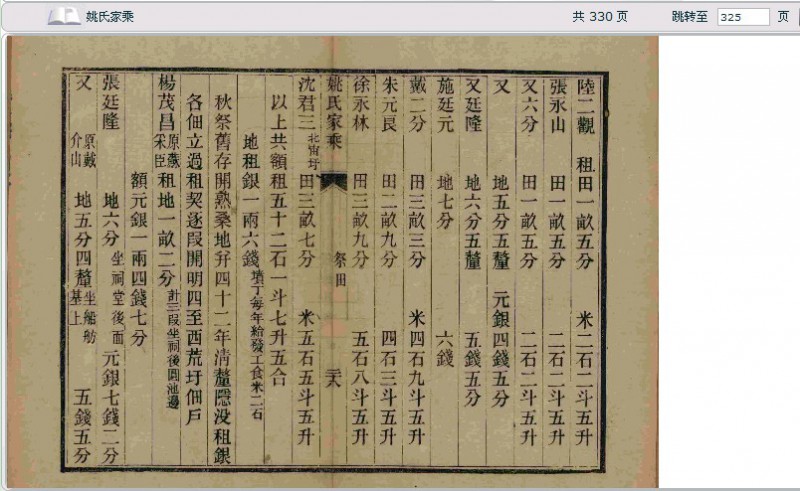 姚氏家乘
共 330 页
跳转至 325 页
陸二觀 租田一畝五分 米二石二斗五升
張永山 田一畝五分 二石二斗五升
又六分 田一畝五分 二石二斗五升
又 地五分五釐 元銀四錢五分
又廷隆 地六分五釐 五錢五分
施廷元 地七分 六錢
戴二分 田三畝三分 米四石九斗五升
朱元良 田二畝九分 四石三斗五升
徐永林 田三畝九分 五石八斗五升
姚氏家乘 祭田 二六
沈君三 北宙圩 田三畝七分 米五石五斗五升
以上共額租五十二石一斗七升五合
地租銀一兩六錢 墳丁每年給發工食米二石
秋祭舊存開熟桑地幷四十二年清釐隱没租銀
各佃立過租契逐段開明四至西荒圩佃戶
楊茂昌 原戴采臣 租地一畝二分 計三段坐祠後圓池邊
額元銀一兩四錢七分
張廷隆 地六分 坐祠堂後面 元銀七錢二分
又 原戴介山 地五分四釐 坐船舫基上 五錢五分